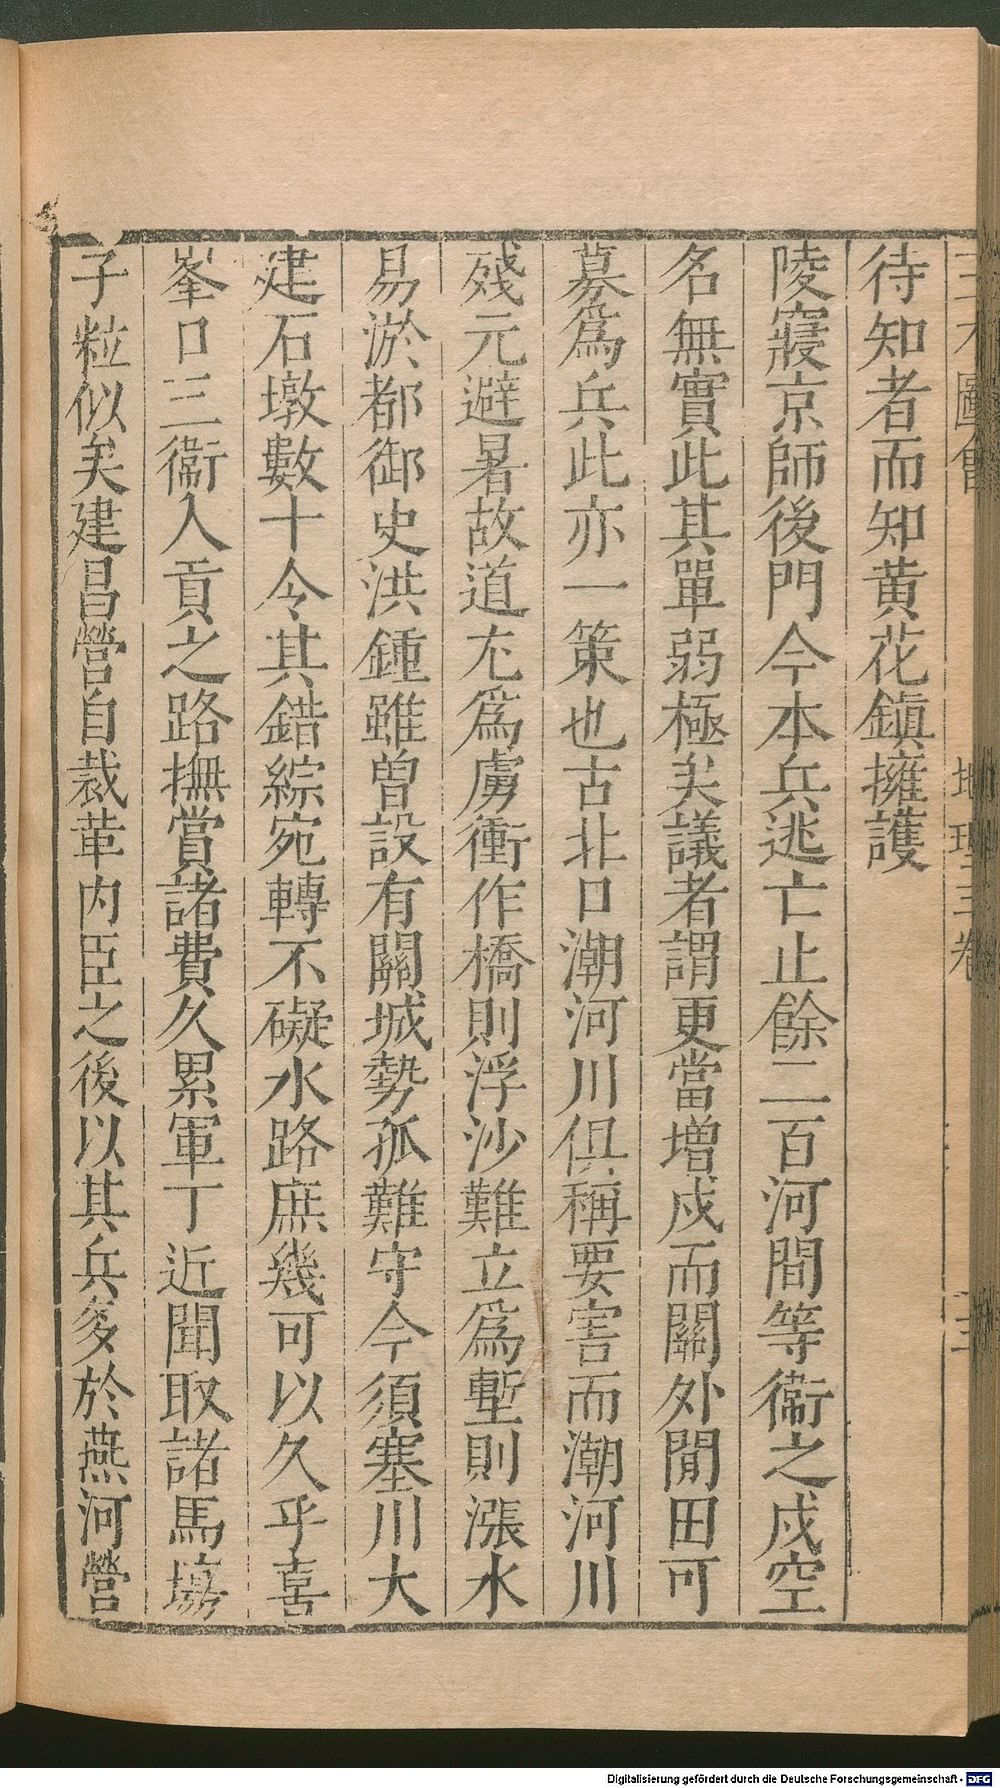 三才圖會 地理三卷 三
待知者而知黄花鎮擁護
陵寢京師後門今本兵逃亡止餘二百河間等衞之戍空
名無實此其單弱極矣議者謂更當增戍而關外閒田可
募爲兵此亦一策也古北口潮河川俱稱要害而潮河川
殘元避暑故道尤爲虜衝作橋則浮沙難立爲塹則漲水
易淤都御史洪鍾雖曾設有關城勢孤難守今須塞川大
建石墩數十令其錯綜宛轉不礙水路庶幾可以久乎喜
峯口三衞入貢之路撫賞諸費久累軍丁近聞取諸馬塲
子粒似矣建昌營自裁革内臣之後以其兵多於燕河營
Digitalisierung gefördert durch die Deutsche Forschungsgemeinschaft - DFG